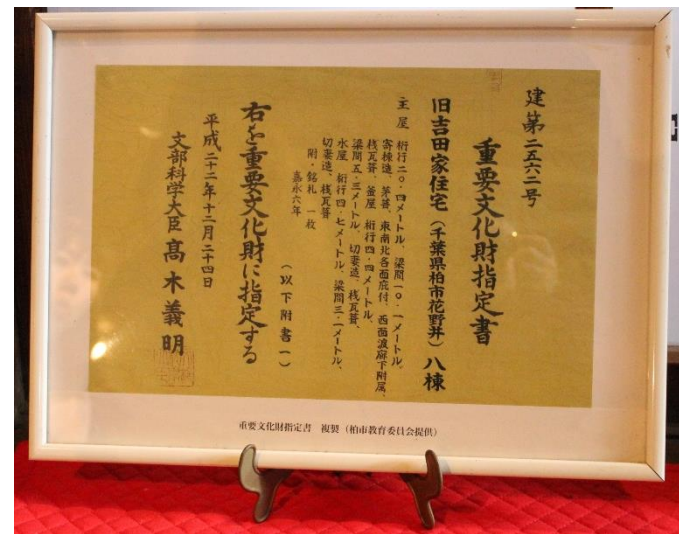 建第二五六二号
重要文化財指定書
旧吉田家住宅（千葉県柏市花野井）八棟
主屋 桁行二〇・四メートル、梁間一〇・一メートル、
寄棟造、茅葺、東南北各面庇付、西面渡廊下附属、
桟瓦葺、釜屋 桁行四・四メートル、
梁間五・三メートル、切妻造、桟瓦葺、
水屋 桁行四・七メートル、梁間三・一メートル、
切妻造、桟瓦葺
附・銘札 一枚
嘉永六年
（以下附書一）
右を重要文化財に指定する
平成二十二年十二月二十四日
文部科学大臣 髙木義明
重要文化財指定書 複製（柏市教育委員会提供）